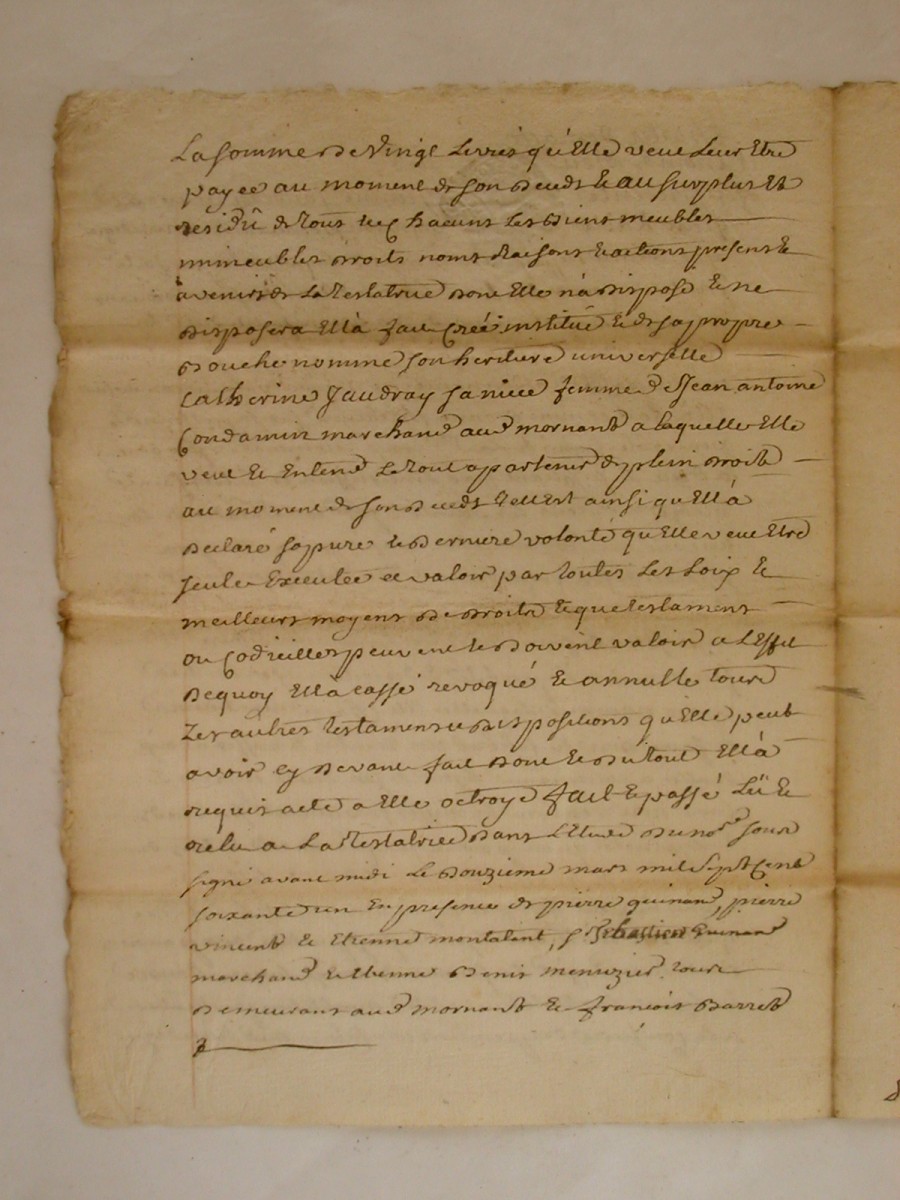 La somme de Vingt Livres qu'Elle veut Leur Etre
payée au moment de son deceds Et au surplus Et
residû de Tous Et Chacuns Les Biens meubles
immeubles droits noms Raisons Et actions presens Et
avenirs de La Testatrice dont Elle n'a disposé Et ne
disposera Ell'à fait Créé institué Et de sa propre
Bouche nommé son heritiere universelle
Catherine Jaudray sa niece femme de sr Jean antoine
Condamin marchand aud mornant a laquelle Elle
veut Et Entend Le Tout apartenir de plein droit
au moment de son deceds Tell Est ainsi qu'Ell'à
Declaré sa pure Et Derniere volonté qu'Elle veut Etre
seule Executée et valoir par toutes Les Loix Et
meilleurs moyens De Droits Et que testament
ou Codicilles peuvent Et Doivent valoir a L'Effet
Dequoy Ell'à cassé revoqué Et annullé tous
Les autres testamens Et Dispositions qu'Elle peut
avoir Cy Devant fait Dont Et Du tout Ell'à
requis acte a Elle octroyé fait Et passé Lû Et
relu a La Testatrice Dans L'Etude Du nore sous
signé avant midi Le Douzieme mars mil sept Cent
soixante un En presence de pierre guinand, pierre
vincent Et Etienne montalant, sr sebastien Guinand
marchand Etienne Denis menuzier tous
Demeurants aud mornant Et françois Barret